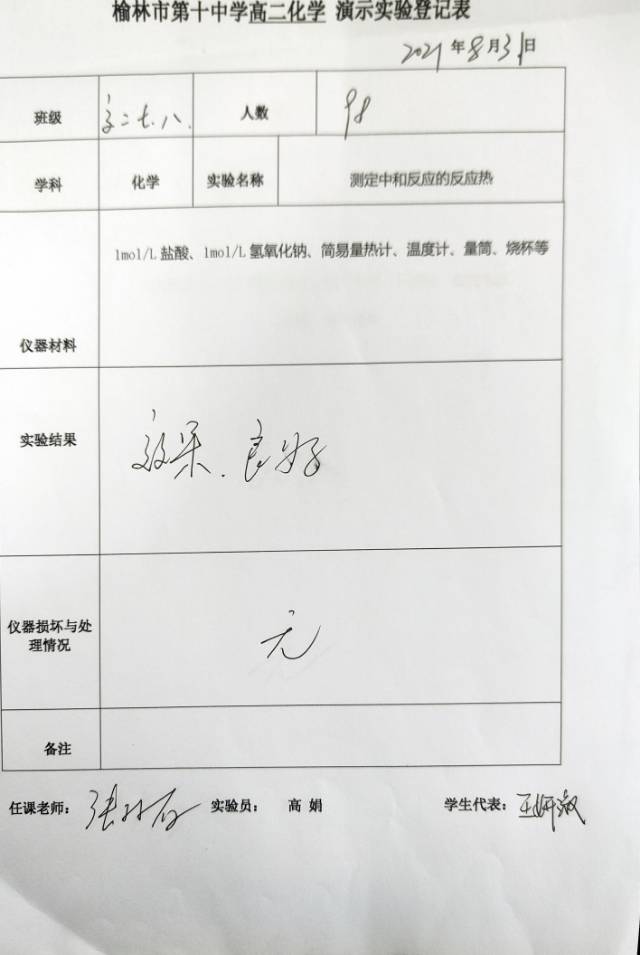 榆林市第十中学高二化学 演示实验登记表
2021年8月31日
班级 高二七.八. 人数 98
学科 化学 实验名称 测定中和反应的反应热
仪器材料 1mol/L 盐酸、1mol/L 氢氧化钠、简易量热计、温度计、量筒、烧杯等
实验结果 效果.良好
仪器损坏与处
理情况
无
备注
任课老师: 张 实验员: 高 娟 学生代表: 王妍淑